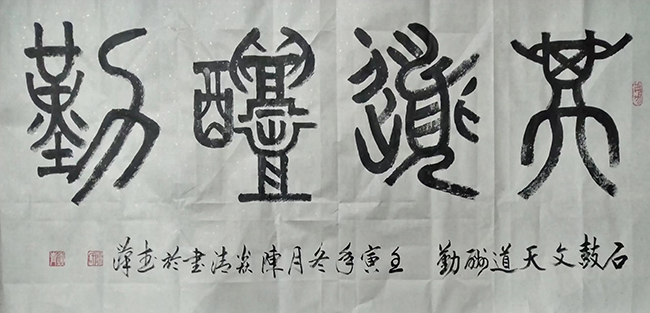 天道酬勤
石鼓文天道酬勤 壬寅年冬月陳炎清書於